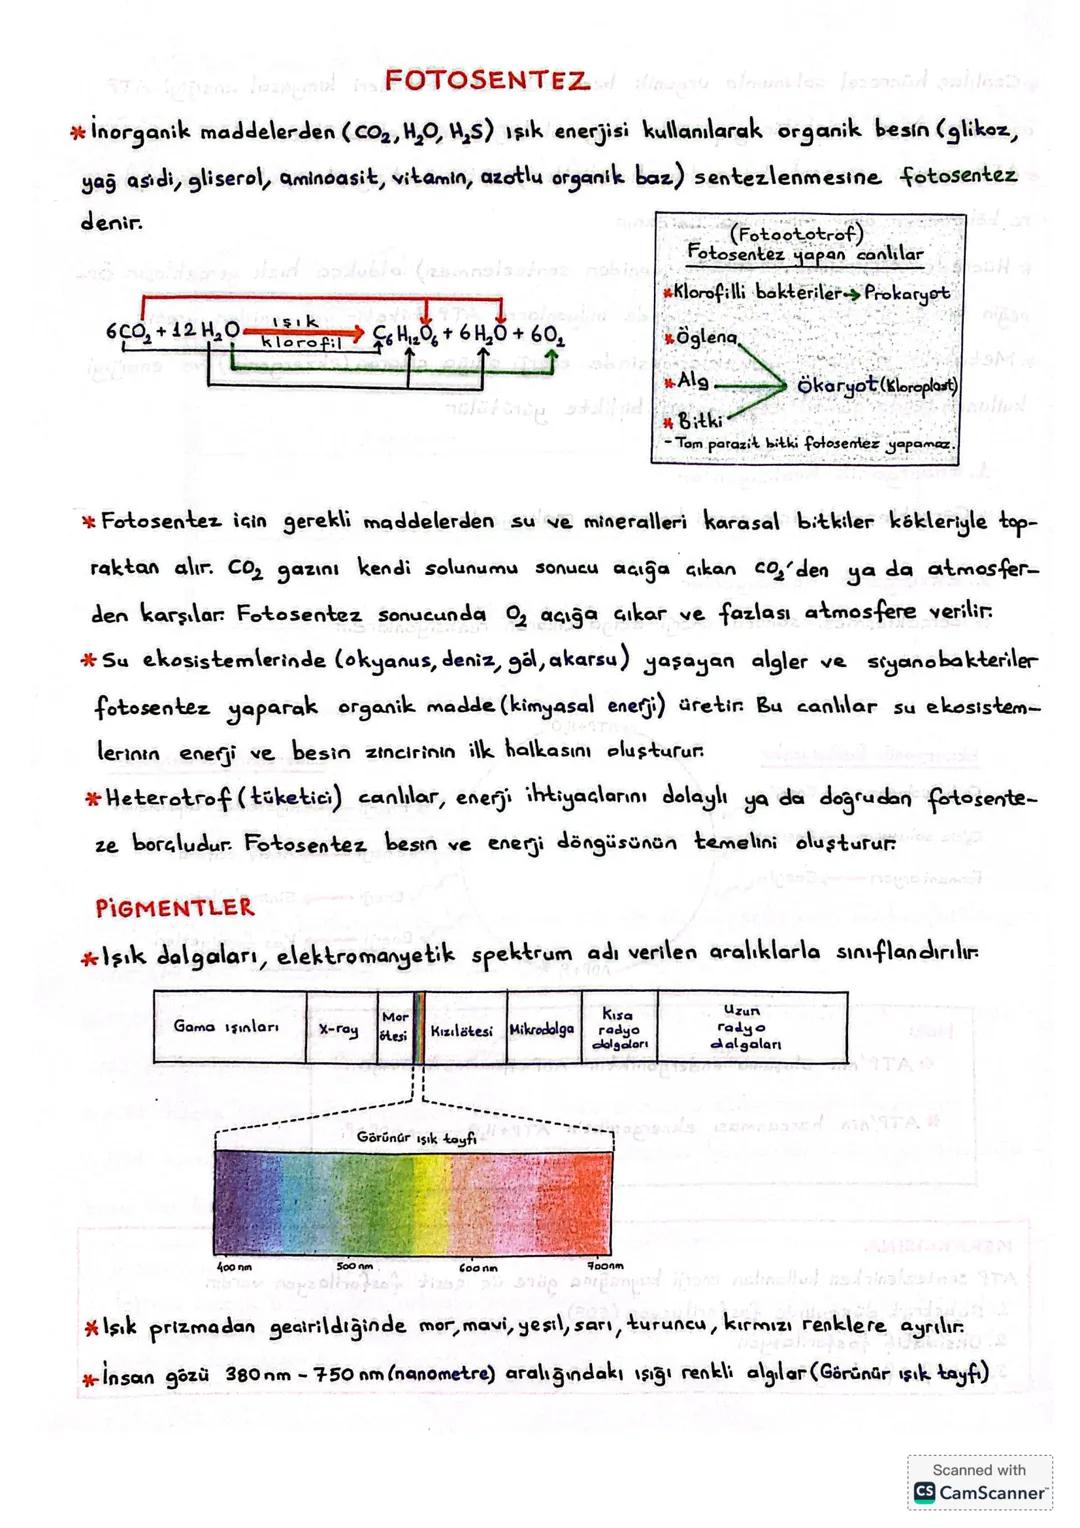 FOTOSENTEZ
* İnorganik maddelerden (CO₂, H₂O, H₂S) ışık enerjisi kullanılarak organik besin (glikoz,
yağ asidi, gliserol, aminoasit, vitamin, azotlu organik baz) sentezlenmesine fotosentez
denir.
(Fotoototrof)
Fotosentez yapan canlılar
* Klorofilli bakteriler → Prokaryot
* Öglena
* Alg
Ökaryot (kloroplast)
* Bitki
- Tam parazit bitki fotosentez yapamaz.
6CO₂ + 12H₂O ışık klorofil → C₆H₁₂O₆ + 6H₂O + 6O₂
* Fotosentez için gerekli maddelerden su ve mineralleri karasal bitkiler kökleriyle top-
raktan alır. CO₂ gazını kendi solunumu sonucu açığa çıkan CO₂'den ya da atmosfer-
den karşılar. Fotosentez sonucunda O₂ açığa çıkar ve fazlası atmosfere verilir.
* Su ekosistemlerinde (okyanus, deniz, göl, akarsu) yaşayan algler ve siyanobakteriler
fotosentez yaparak organik madde (kimyasal enerji) üretir. Bu canlılar su ekosistem-
lerinin enerji ve besin zincirinin ilk halkasını oluşturur.
* Heterotrof (tüketici) canlılar, enerji ihtiyaçlarını dolaylı ya da doğrudan fotosente-
ze borçludur. Fotosentez besin ve enerji döngüsünün temelini oluşturur.
PİGMENTLER
* Işık dalgaları, elektromanyetik spektrum adı verilen aralıklarla sınıflandırılır.
Gama ışınları
X-ray
Mor ötesi
Kızılötesi
Mikrodalga
Kısa radyo dalgaları
Uzun radyo dalgaları
Görünür ışık tayfı
400 nm 500 nm 600 nm 700nm
* Işık prizmadan geçirildiğinde mor, mavi, yeşil, sarı, turuncu, kırmızı renklere ayrılır.
* İnsan gözü 380nm - 750 nm (nanometre) aralığındaki ışığı renkli algılar (Görünür ışık tayfı)
Scanned with
CS CamScanner